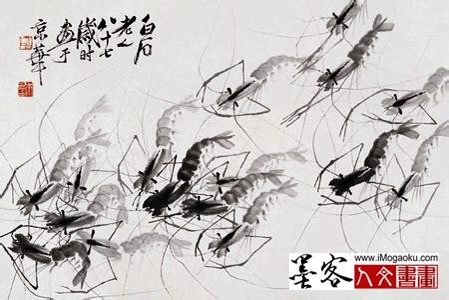 白石
老人
八十七
歲时
画于
京華
www.iMogaoku.com
墨客
人文書畫